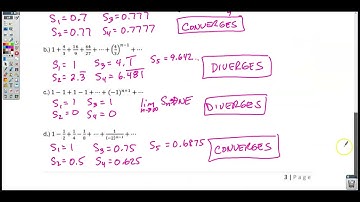 S₁ = 0.7 S₃ = 0.777
S₂ = 0.77 S₄ = 0.7777
CONVERGES
b.) 1 + 4/3 + 16/9 + 64/27 + ⋯ + (4/3)ⁿ⁻¹ + ⋯
S₁ = 1 S₃ = 4.1 S₅ = 9.642...
S₂ = 2.3 S₄ = 6.481
DIVERGES
c.) 1 − 1 + 1 − 1 + ⋯ + (−1)ⁿ⁺¹ + ⋯
S₁ = 1 S₃ = 1
S₂ = 0 S₄ = 0
DIVERGES
d.) 1 − 1/2 + 1/4 − 1/8 + ⋯ + 1/(−2)ⁿ⁻¹ + ⋯
S₁ = 1 S₃ = 0.75 S₅ = 0.6875
S₂ = 0.5 S₄ = 0.625
CONVERGES
3 | Page